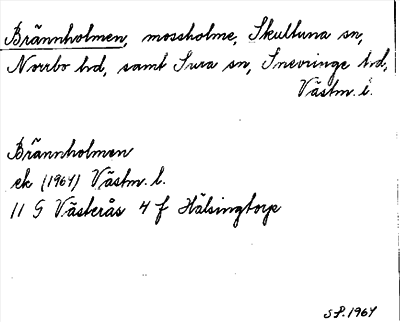 Brännholmen, mossholme, Skultuna sn,
Norrbo hd, samt Sura sn, Snevringe hd,
Västm. l.
Brännholmen
ek (1964) Västm. l.
11 G Västerås 4 f Hälsingtorp
S.P. 1964